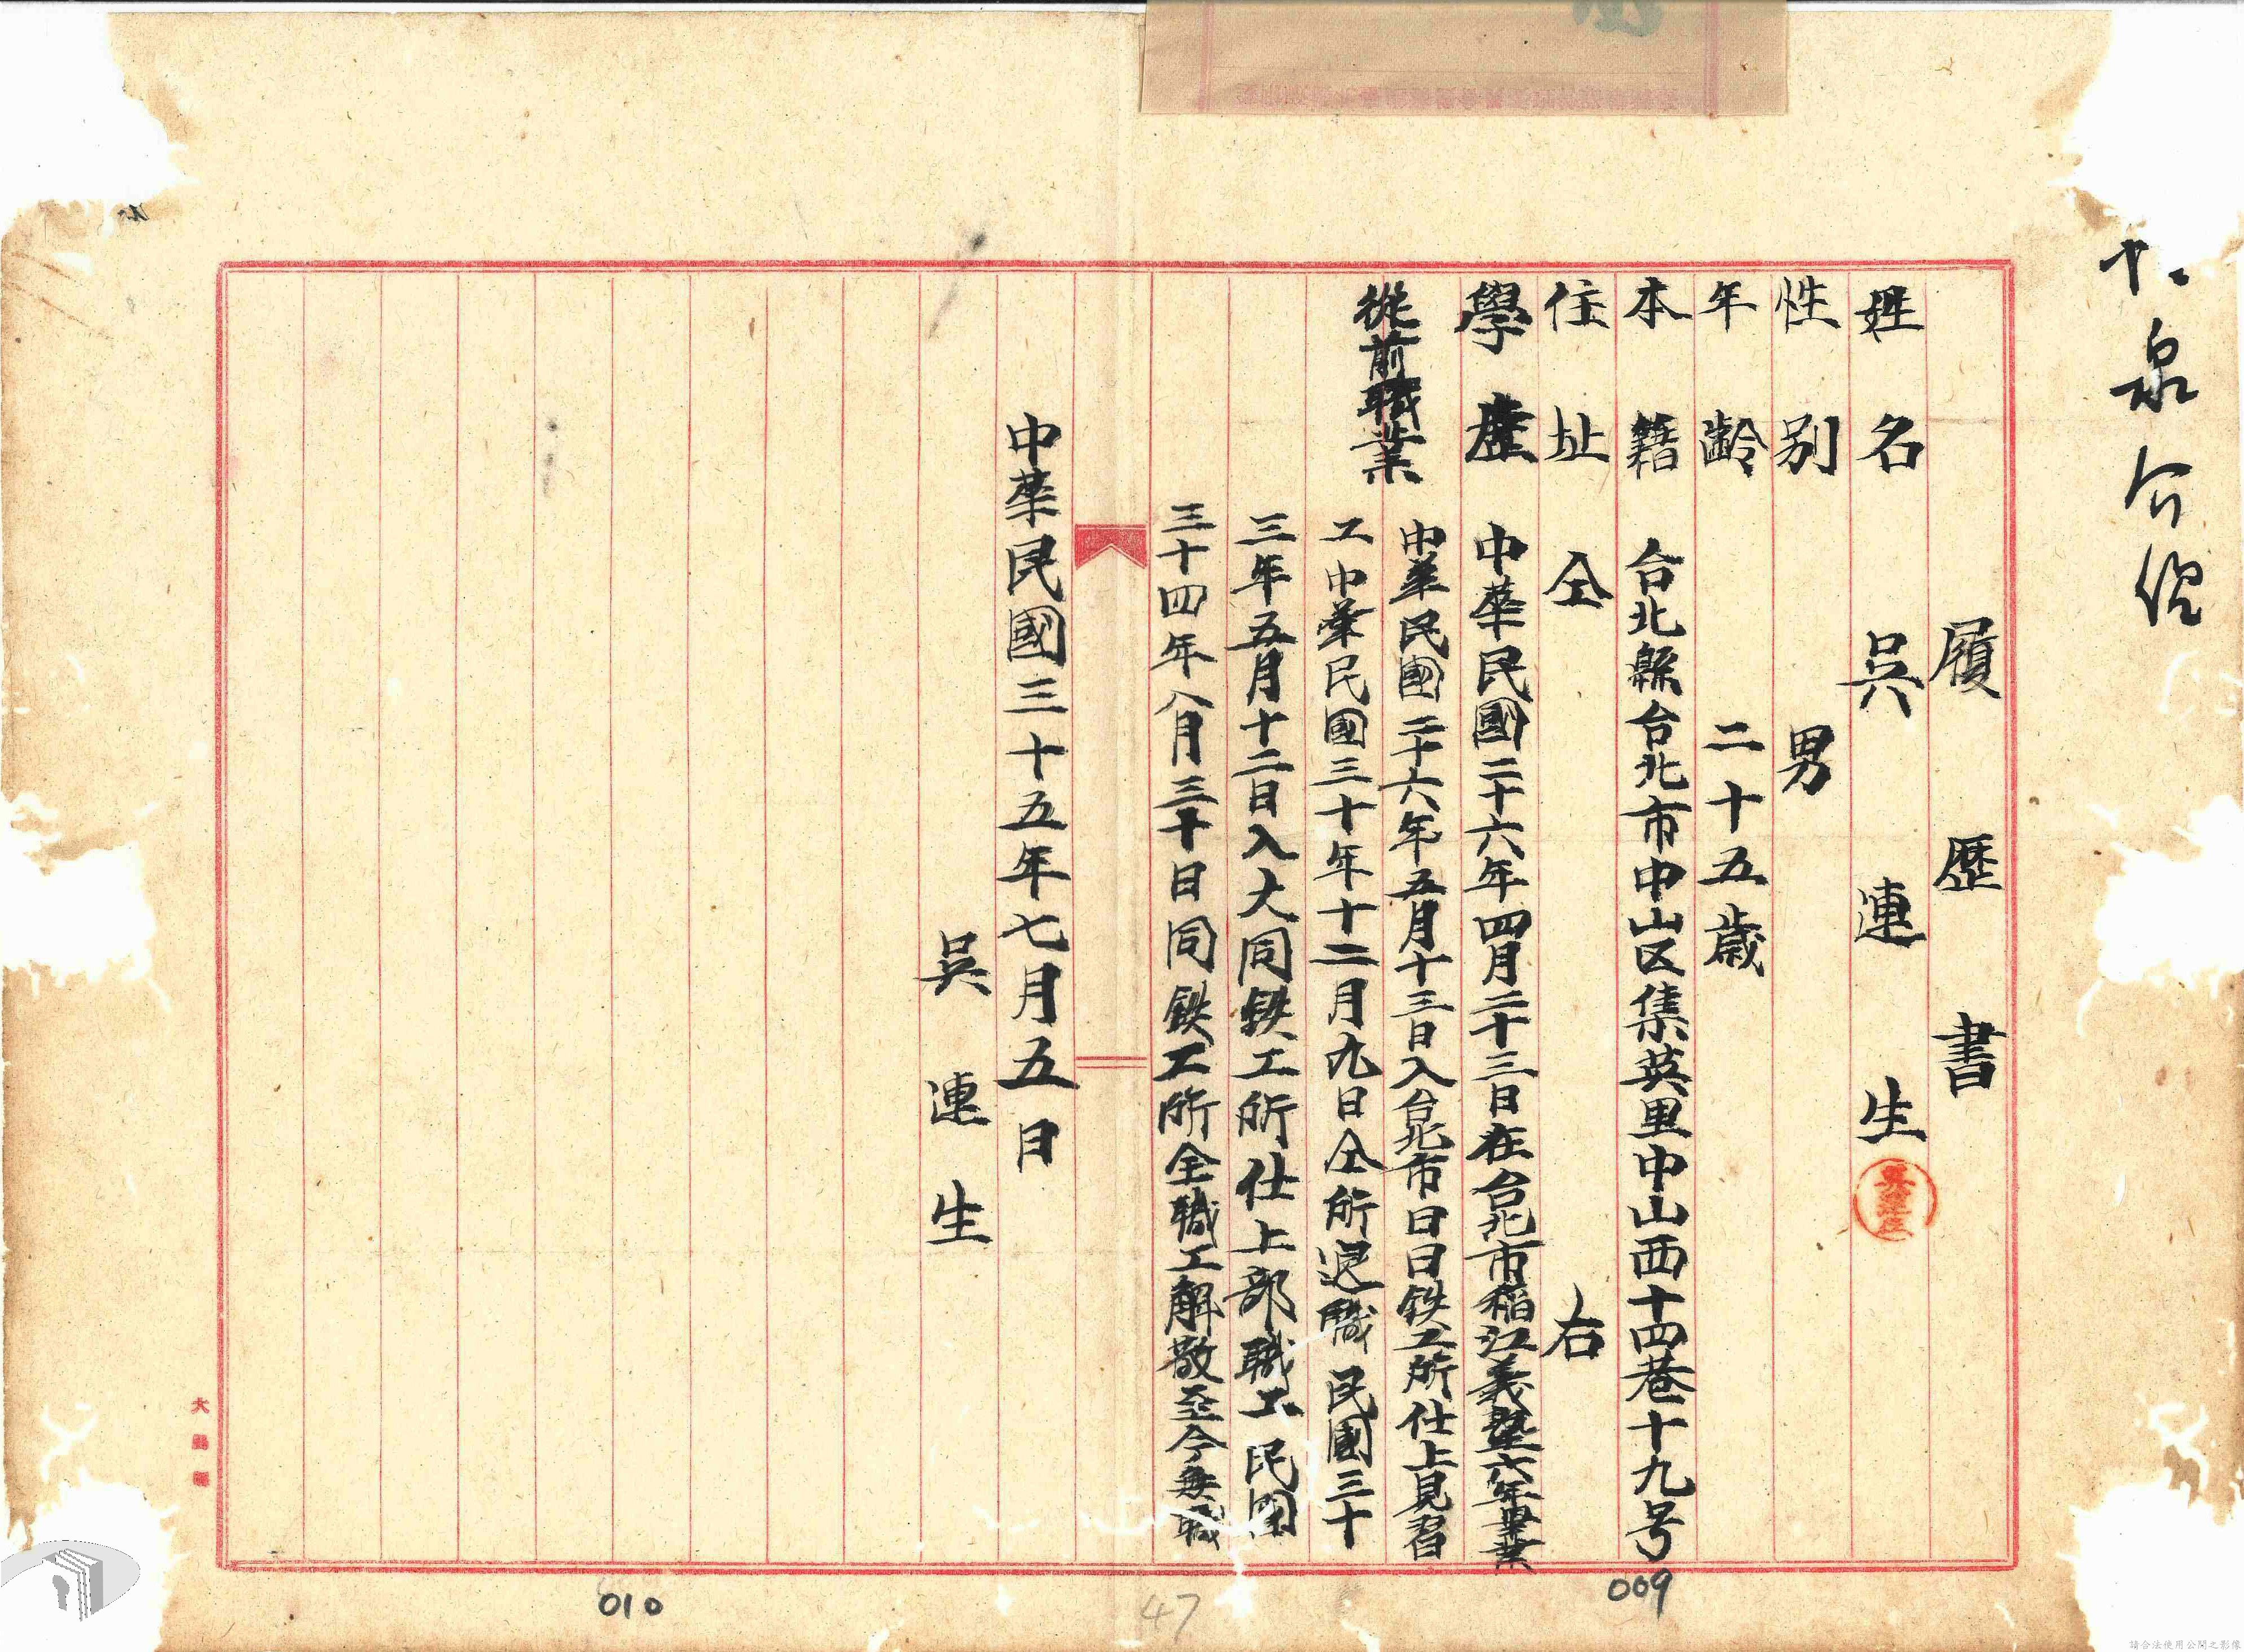 履歷書
姓名 吳連生
性別 男
年齡 二十五歲
本籍 台北縣台北市中山区集英里中山西十四巷十九号
住址 仝右
學歷 中華民國二十六年四月二十三日在台北市稲江義塾六年畢業
從前職業 中華民國二十六年五月十三日入台北市日日鉄工所仕上見習
工中華民國三十年十二月九日仝所退職 民國三十
三年五月十二日入大同鉄工所仕上部職工 民國
三十四年八月三十日同鉄工所全職工解散至今無職
中華民國三十五年七月五日
吳連生
009
010
47
請合法使用公開之影像